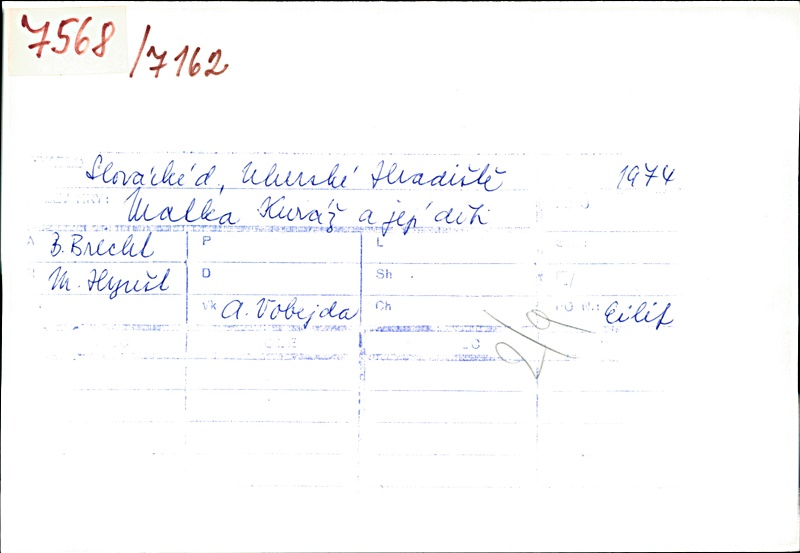 7568 /7162
Slovácké d, Uherské Hradiště 1974
Matka Kuráž a její děti
B. Brecht P L
M. Hynšt D Sh
Vk A. Vobejda Ch Eilif
2/9